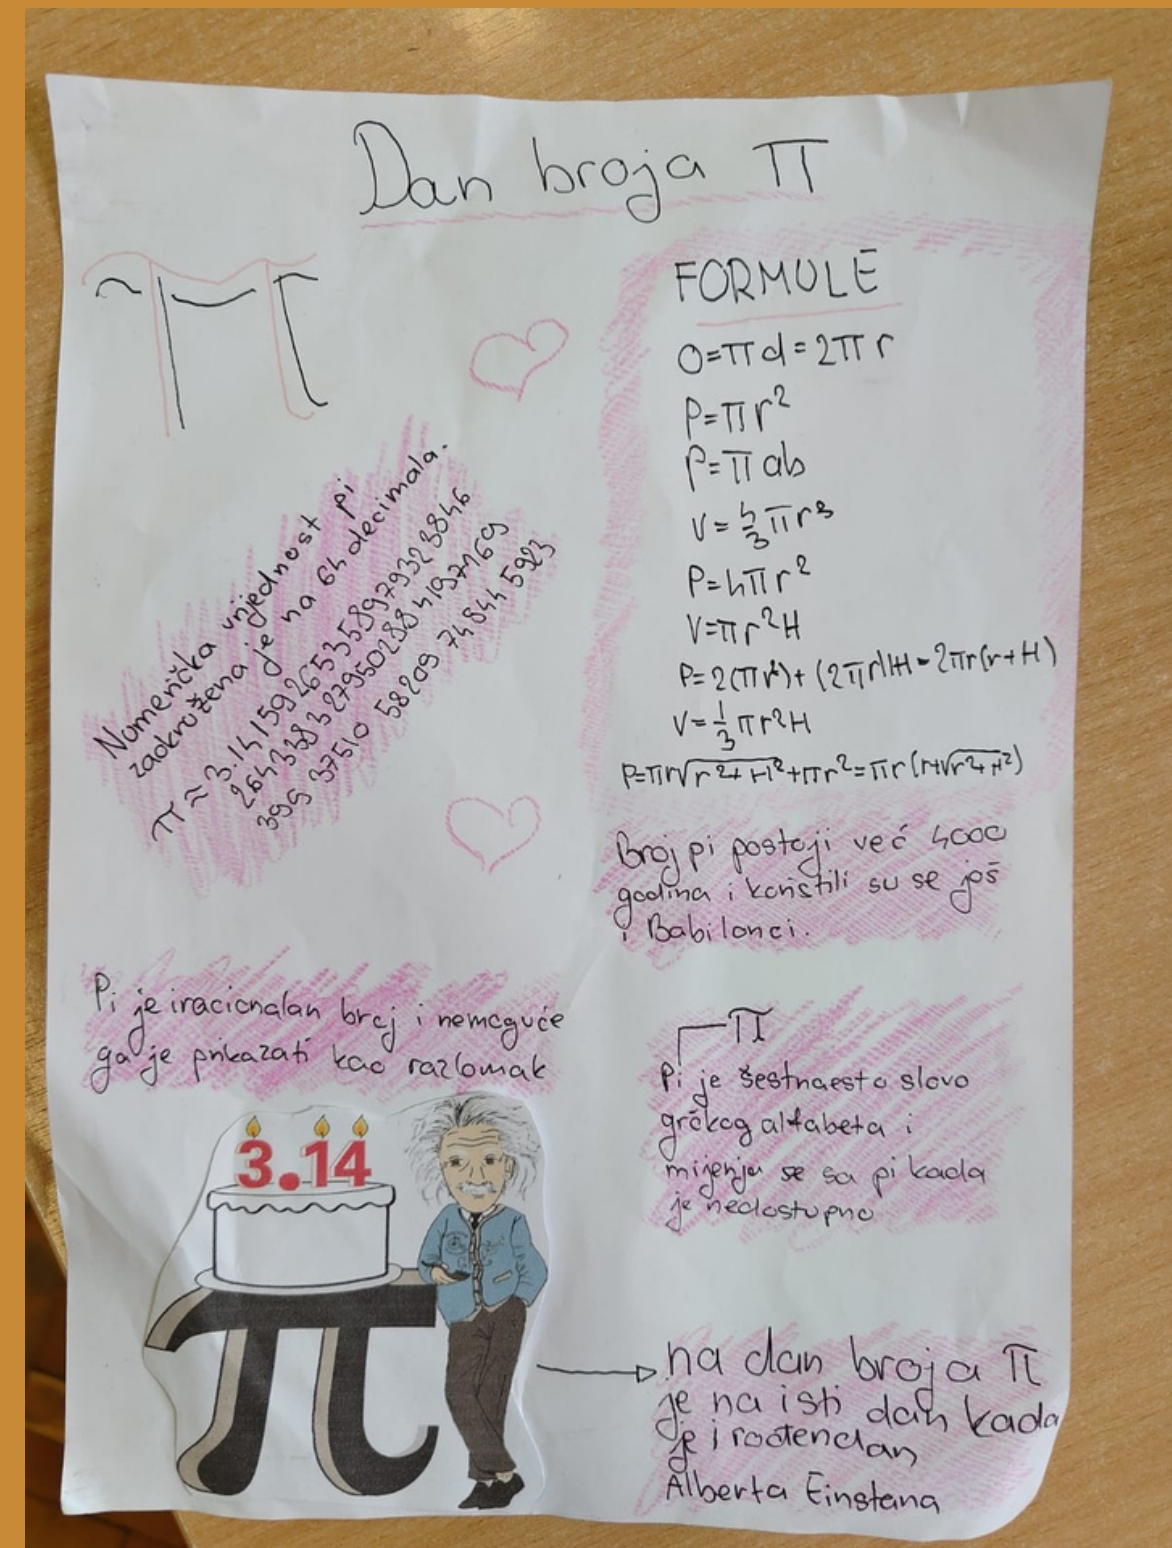 Dan broja π
π
Numerička vrijednost pi
zaokružena je na 64 decimala.
π ≈ 3.14159265358979323846
264338327950288 4197169
399 37510 58209 74944 5923
FORMULE
O=πd=2πr
P=πr²
P=πab
V=4/3πr³
P=4πr²
V=πr²H
P=2(πr²)+(2πr)H=2πr(r+H)
V=1/3πr²H
P=πr√r²+H²+πr²=πr(r+√r²+H²)
Broj pi postoji već 4000
godina i koristili su se još
i Babilonci.
Pi je iracionalan broj i nemoguće
ga je prikazati kao razlomak
π
Pi je šestnaesto slovo
grčkog alfabeta i
mijenja se sa pi kada
je nedostupno
3.14
π
na dan broja π
je na isti dan kada
je i rođendan
Alberta Einstana